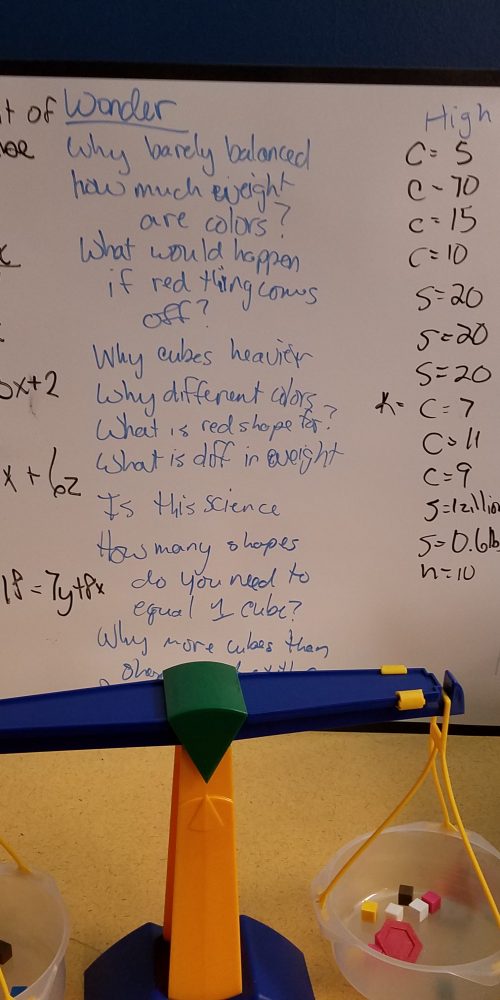 t of Wonder
Why barely balanced
how much weight
are colors?
What would happen
if red thing comes
off?
Why cubes heavier
Why different colors
What is red shape for?
What is diff in weight
Is this science
How many shapes
do you need to
equal 1 cube?
Why more cubes than
x+2
x + 6z
18 = 7y+8x
High
C = 5
C - 70
C = 15
C = 10
S = 20
S = 20
S = 20
C = 7
C = 11
C = 9
S = 0.6lb
n = 10